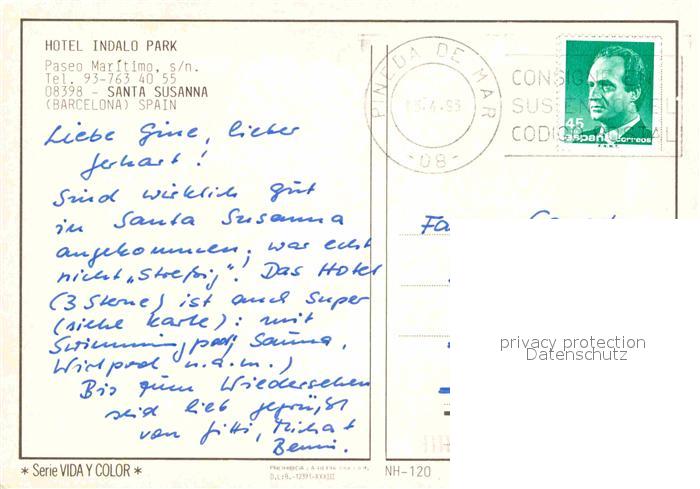 HOTEL INDALO PARK
Paseo Marítimo, s/n.
Tel. 93-763 40 55
08398 - SANTA SUSANNA
(BARCELONA) SPAIN
Liebe Gine, lieber
Gerhart!
Sind wirklich gut
in Santa Susanna
angekommen, war echt
nicht „Streßig“! Das Hotel
(3 Sterne) ist auch super
(siehe Karte): mit
Swimmingpool, Sauna,
Wirlpool u.a.m.)
Bis zum Wiedersehen
seid lieb gegrüßt
von Gitti, Michat
Benni.
* Serie VIDA Y COLOR *
PINEDA DE MAR
13.4.93
-08-
CONSIGNE EN
SUS EL
CODIGO POSTAL
45
españa correos
Fa
privacy protection
Datenschutz
NH-120